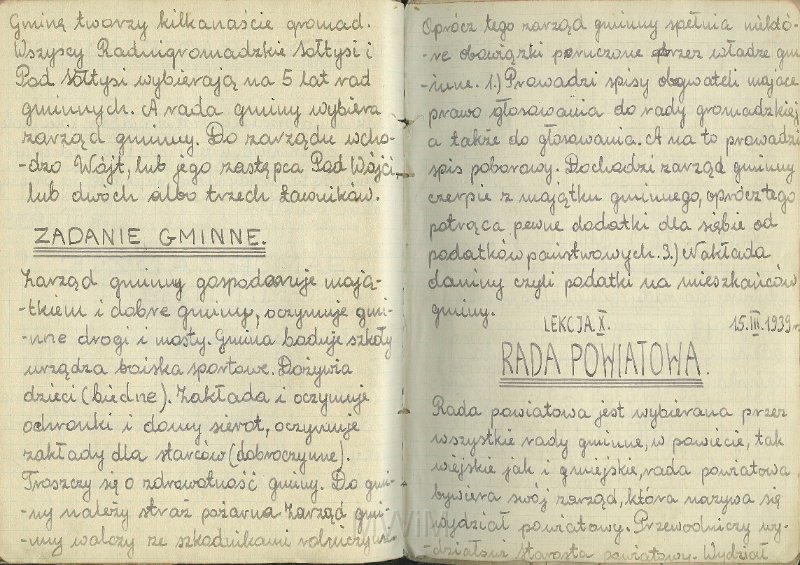 Gminę tworzy kilkanaście gromad.
Wszyscy Radnigromadzkie Sołtysi i
Pod Sołtysi wybierają na 5 lat rad
gminnych. A rada gminy wybiera
zarząd gminny. Do zarządu wcho-
-dzo Wójt, lub jego zastępca Pod Wójci,
lub dwóch albo trzech ławników.
ZADANIE GMINNE.
Zarząd gminny gospodaruje mają-
-tkiem i dobre gminy, oczymuje gmi-
-nne drogi i mosty. Gmina baduje szkoły
urządza boiska sportowe. Dożywia
dzieci (biedne). Zakłada i oczymuje
ochronki i domy sierot, oczymuje
zakłady dla starców (dobroczynne).
Troszczy się o zdrowotność gminy. Do gmi-
-ny należy straż pożarna Zarząd gmi-
-nny walczy ze szkodnikami rolniczymi.
Oprócz tego zarząd gminny spełnia niektó-
-re obowiązki poruczone przez władze gmi-
-inne. 1.) Prowadzi spisy obywateli mające
prawo głosowania do rady gromadzkiej
a także do głosowania. A na to prowadzi
spis poborowy. Dochadzi zarząd gminny
czerpie z majątku gminnego, oprócz tego
potrąca pewne dodatki dla siebie od
podatków państwowych. 3.) Nakłada
daniny czyli podatki na mieszkańców
gminy.
LEKCJA X. 15.III.1939r.
RADA POWIATOWA.
Rada powiatowa jest wybierana przez
wszystkie rady gminne, w powiecie, tak
wiejskie jak i gmiejskie, rada powiatowa
bywiera swój zarząd, która nazywa się
wydział powiatowy. Przewodniczy wy-
-działowi starosta powiatowy. Wydział